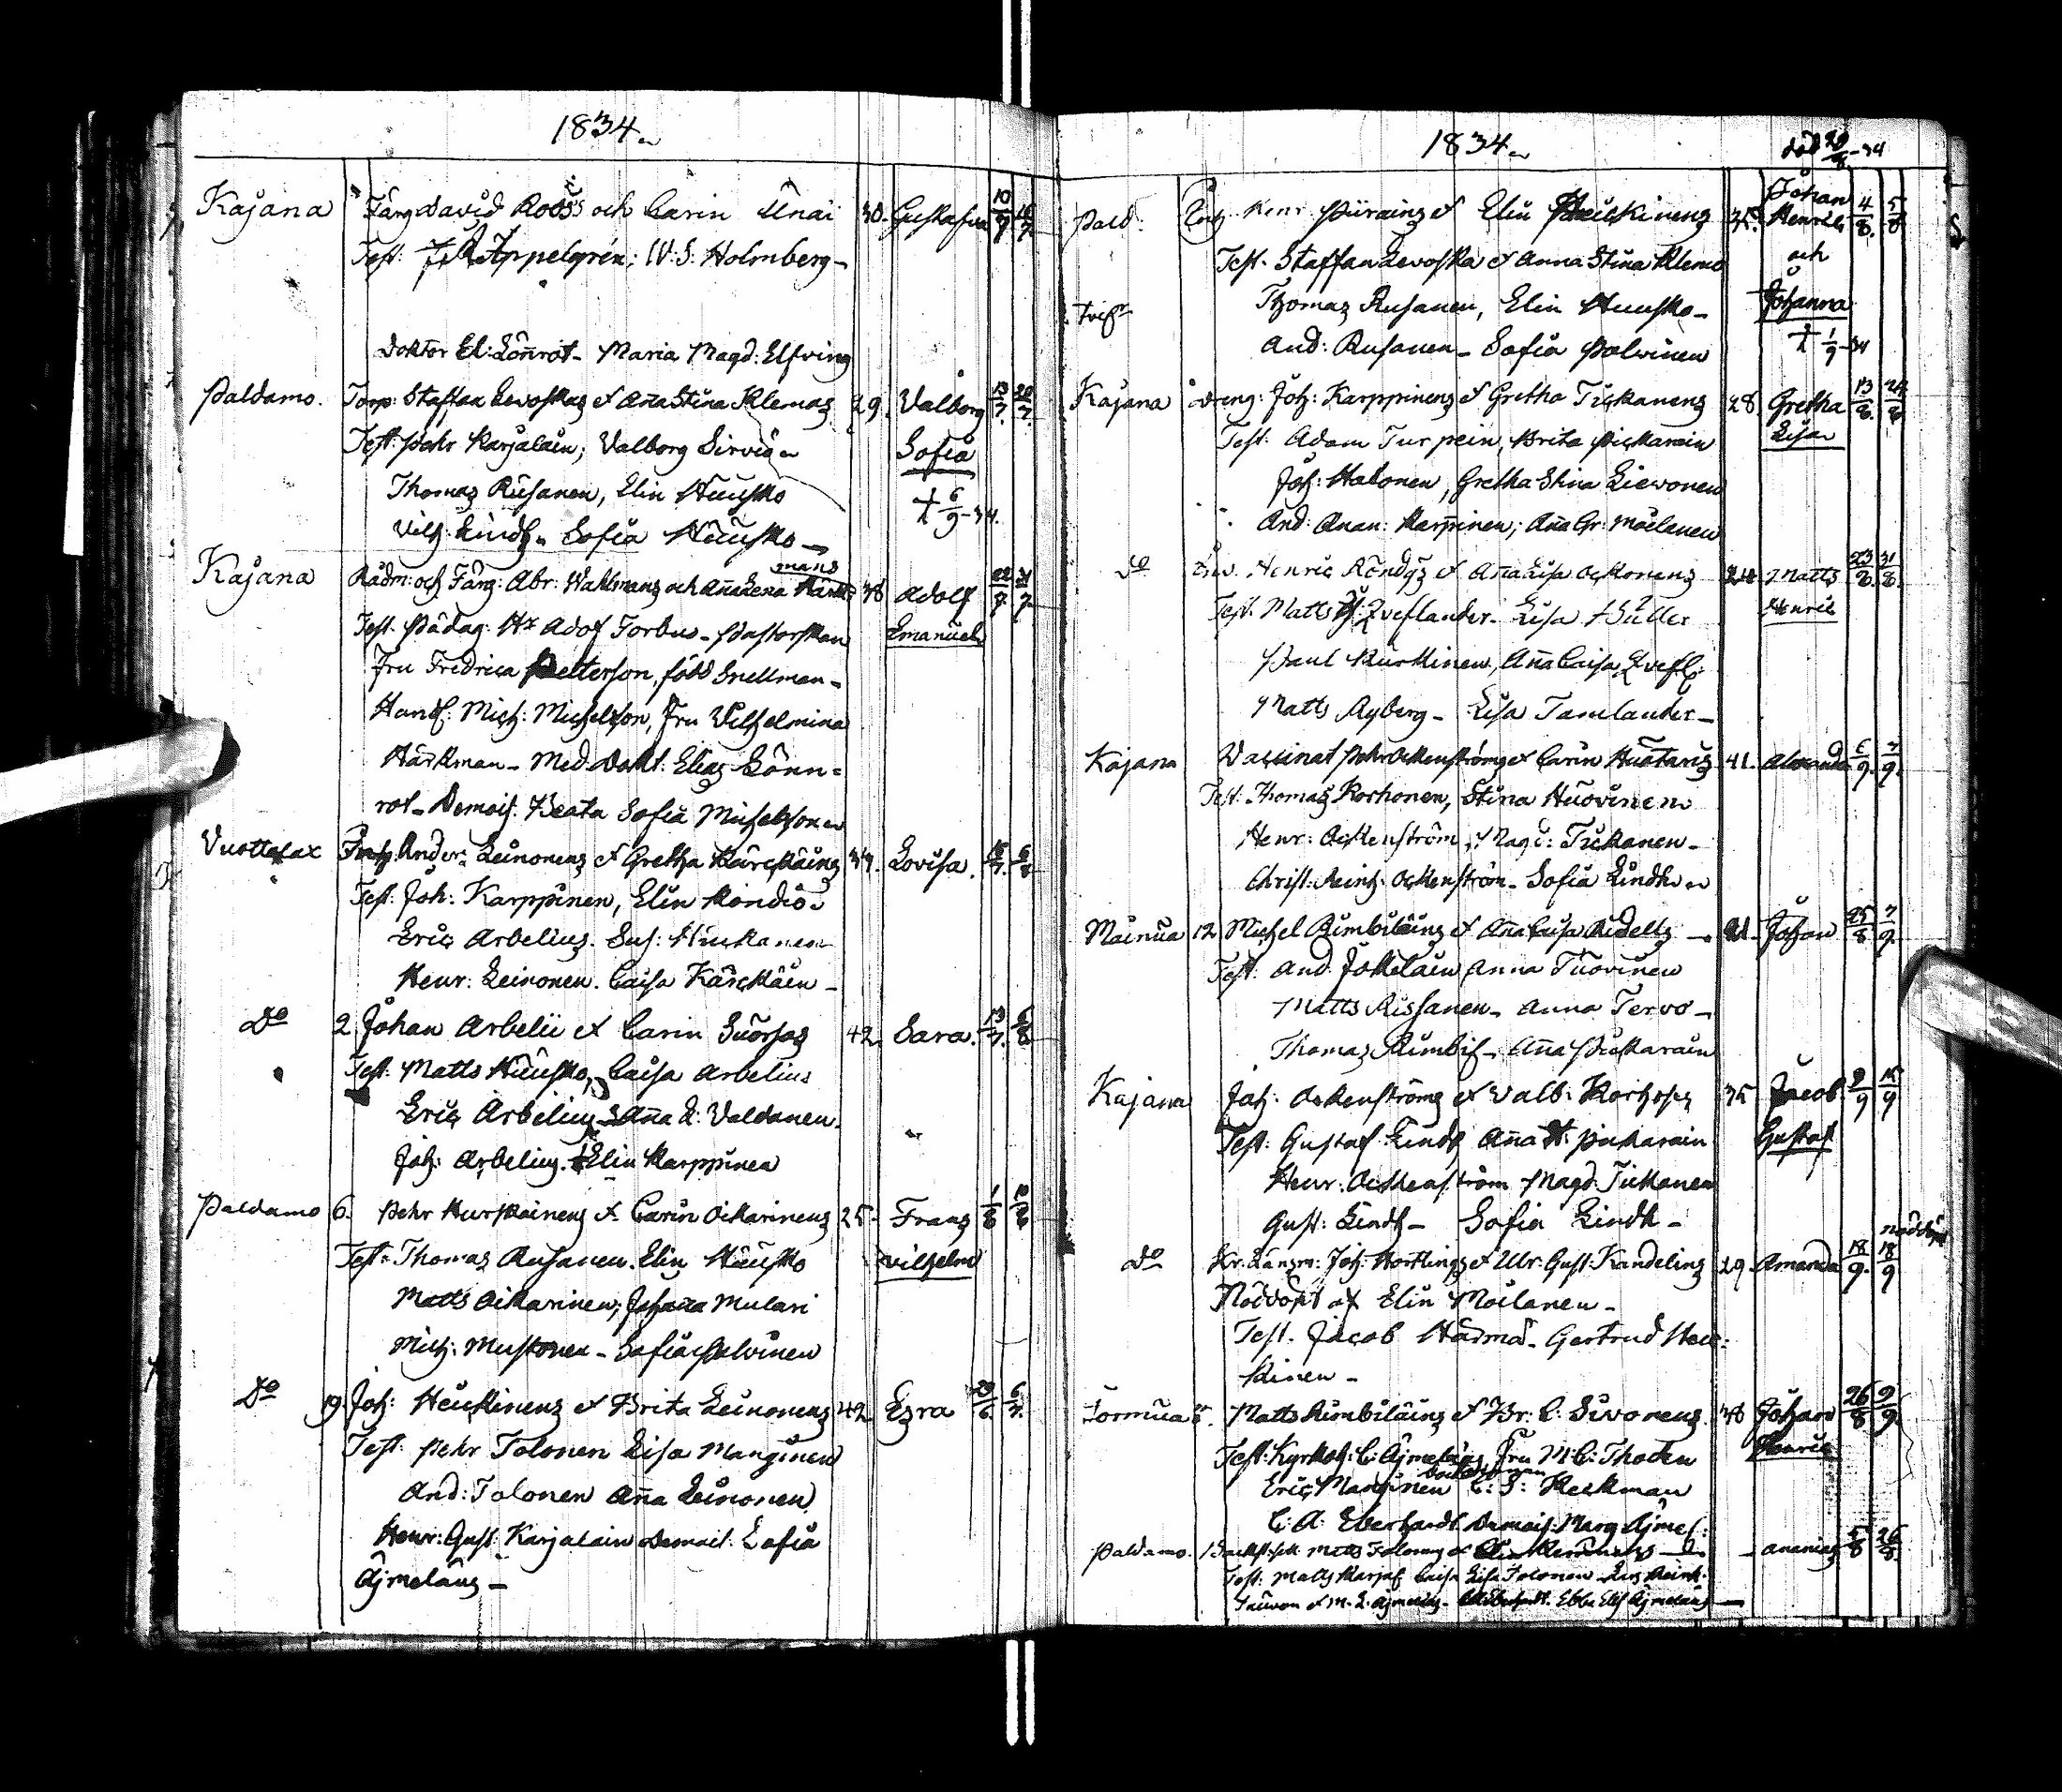 1834.
Kajana Färg. David Roos och Carin Unai 30. Gustafva 10/7
Test: Appelgrén; W: S: Holmberg
Doktor El: Lönnrot - Maria Magd: Elfving
Paldamo. Torp: Staffan Levoskas et Anna Stina Klemas 29. Valborg 13/7. 20/7.
Test: Pehr Karjalain; Valborg Sirviö Sofia
Thomas Rusanen, Elin Huusko † 6/9-34.
Vilh: Lindh. Sofia Huusko
mans
Kajana Rådm: och Färg: Abr: Wahlmans och Anna Lena Härk 38 Adolf 7. 7.
Test. Pädag: Hr Adof Forbus - Pastorskan Emanuel
Fru Fredrica Petterson, född Snellman -
Handl: Mich: Michelson, Fru Vilhelmina
Härkman - Med. Dokt: Elias Lönn=
rot - Demois. Beata Sofia Michelson
Vuottolax Anders Leinonens et Gretha Kärckäins 34. Lovisa. 7. 6/8
Test: Joh: Karppinen, Elin Köndiö
Eric Arbelius. Sus: Hiukanen
Henr: Leinonen. Caisa Kärckäin -
Do 2. Johan Arbelii et Carin Suorsas 42. Sara. 13/7. 6/8
Test: Matts Huusko, Caisa Arbelius
Eric Arbelius - Anna L: Valdanen.
Joh: Arbelius. Elin Karppinen
Paldamo 6. Pehr Hurskainens et Carin Oikarinens 25. Frans 1/8 10/8
Test: Thomas Rusanen. Elin Huusko Vilhelm
Matts Oikarinen; Johanna Mulari
Mich: Mustonen - Sofia Polvinen
Do 19. Joh: Heickinens et Brita Leinonens 42. Esra 29/6. 6/7.
Test: Pehr Tolonen Lisa Manginen
And: Tolonen Anna Leinonen
Henr: Gust: Karjalain Demois. Sofia
Ajmelæus -
1834. död 29/8-34
Pald: Henr Piirains et Elin Heickinens 35. Johan Henric 4/8. 5/8
Test. Staffan Levoska et Anna Stina Klemo och
Thomas Rusanen, Elin Huusko - Johanna
And: Rusanen - Sofia Polvinen † 1/9-34
Kajana Dreng: Joh: Karppinens et Gretha Tickanens 28. Gretha 13/8. 24/8
Test: Adam Turpein, Brita Pickarain Lisa
Joh: Halonen, Gretha Stina Lievonen
And: Anan: Karpinen; Anna Gr: Möilanen
Do Henric Röndys et Anna Lisa Ockonens 24. Matts 23/8. 31/8.
Test. Matts Qveflander. Lisa Müller Henric
Paul Kurkinen, Anna Caisa Qvefl:
Matts Ryberg - Lisa Tamlander -
Kajana Vaccinat. Pehr Ockenströms et Carin Huotaris 41. Alexander 9. 7/9.
Test: Thomas Korhonen, Stina Huovinen
Henr: Ockenström, Magd: Tickanen -
Christ: Reinh: Ockenström - Sofia Lindh
Mainua 12 Michel Rimbiläins et Anna Caisa Ridells 21. Johan 25/8 7/9.
Test: And: Jokelain Anna Tuovinen
Matts Rissanen - Anna Tervo -
Thomas Rimbil. Anna Pickarain
Kajana Joh: Ockenströms et Valb: Korhos 35 Jacob 9/9 14/9
Test: Gustaf Lindh Anna Pickarain Gustaf
Henr: Ockenström Magd: Tickanen
Gust: Lindh - Sofia Lindh -
nöddöpt
Do Kr. Länsm: Joh: Hortlings et Ulr: Gust: Kandelins 29. Amanda 18/9. 18/9
Nöddöpt af Elin Möilanen -
Test. Jacob Härmä. Gertrud Hei=
kinen -
Jormua Matts Rimbiläins et Br: C: Sivonens 38 Johan 26/8 9/9.
Test: Kyrkoh: C: Ajmelæus, Fru M: C: Thoden Henric
Eric Manginen C: S: Heckman
C: A: Eberhardt. Demois: Marg Ajmel:
Paldamo. Matts Tolonens et - Ananias 5/8 26/8.
Test: Matts Karjal Caisa Lisa Tolonen
et M. L. Ajmelæus - Ebba Elis Ajmelæus -